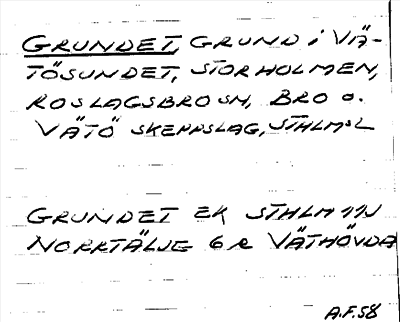 GRUNDET, GRUND i VÄ-
TÖSUNDET, STORHOLMEN,
ROSLAGSBRO SN, BRO o.
VÄTÖ SKEPPSLAG, STHLMSL
GRUNDET EK STHLM 11NJ
NORRTÄLJE 6 R VÄTHÖVDA
A.F.58